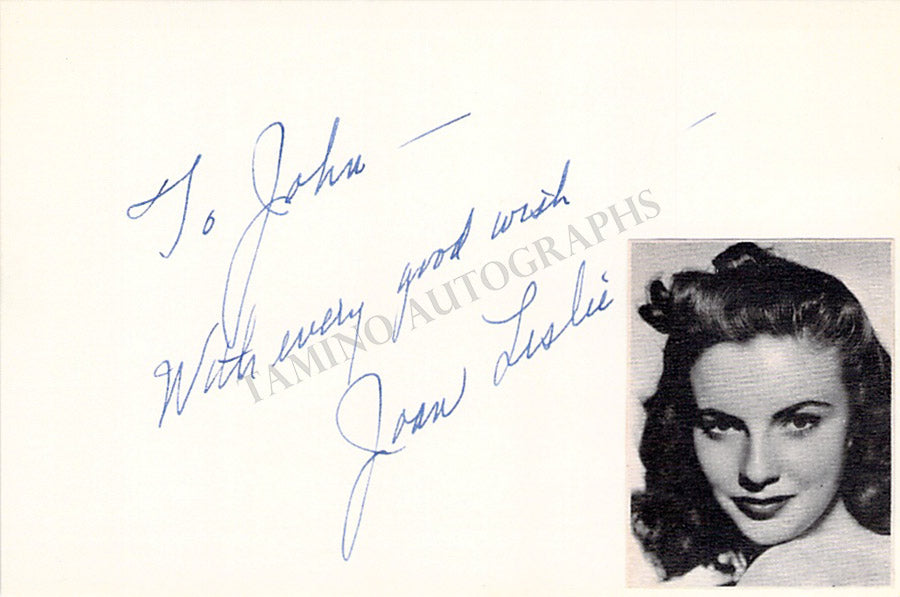 To John —
With every good wish
Joan Leslie
TAMINO AUTOGRAPHS